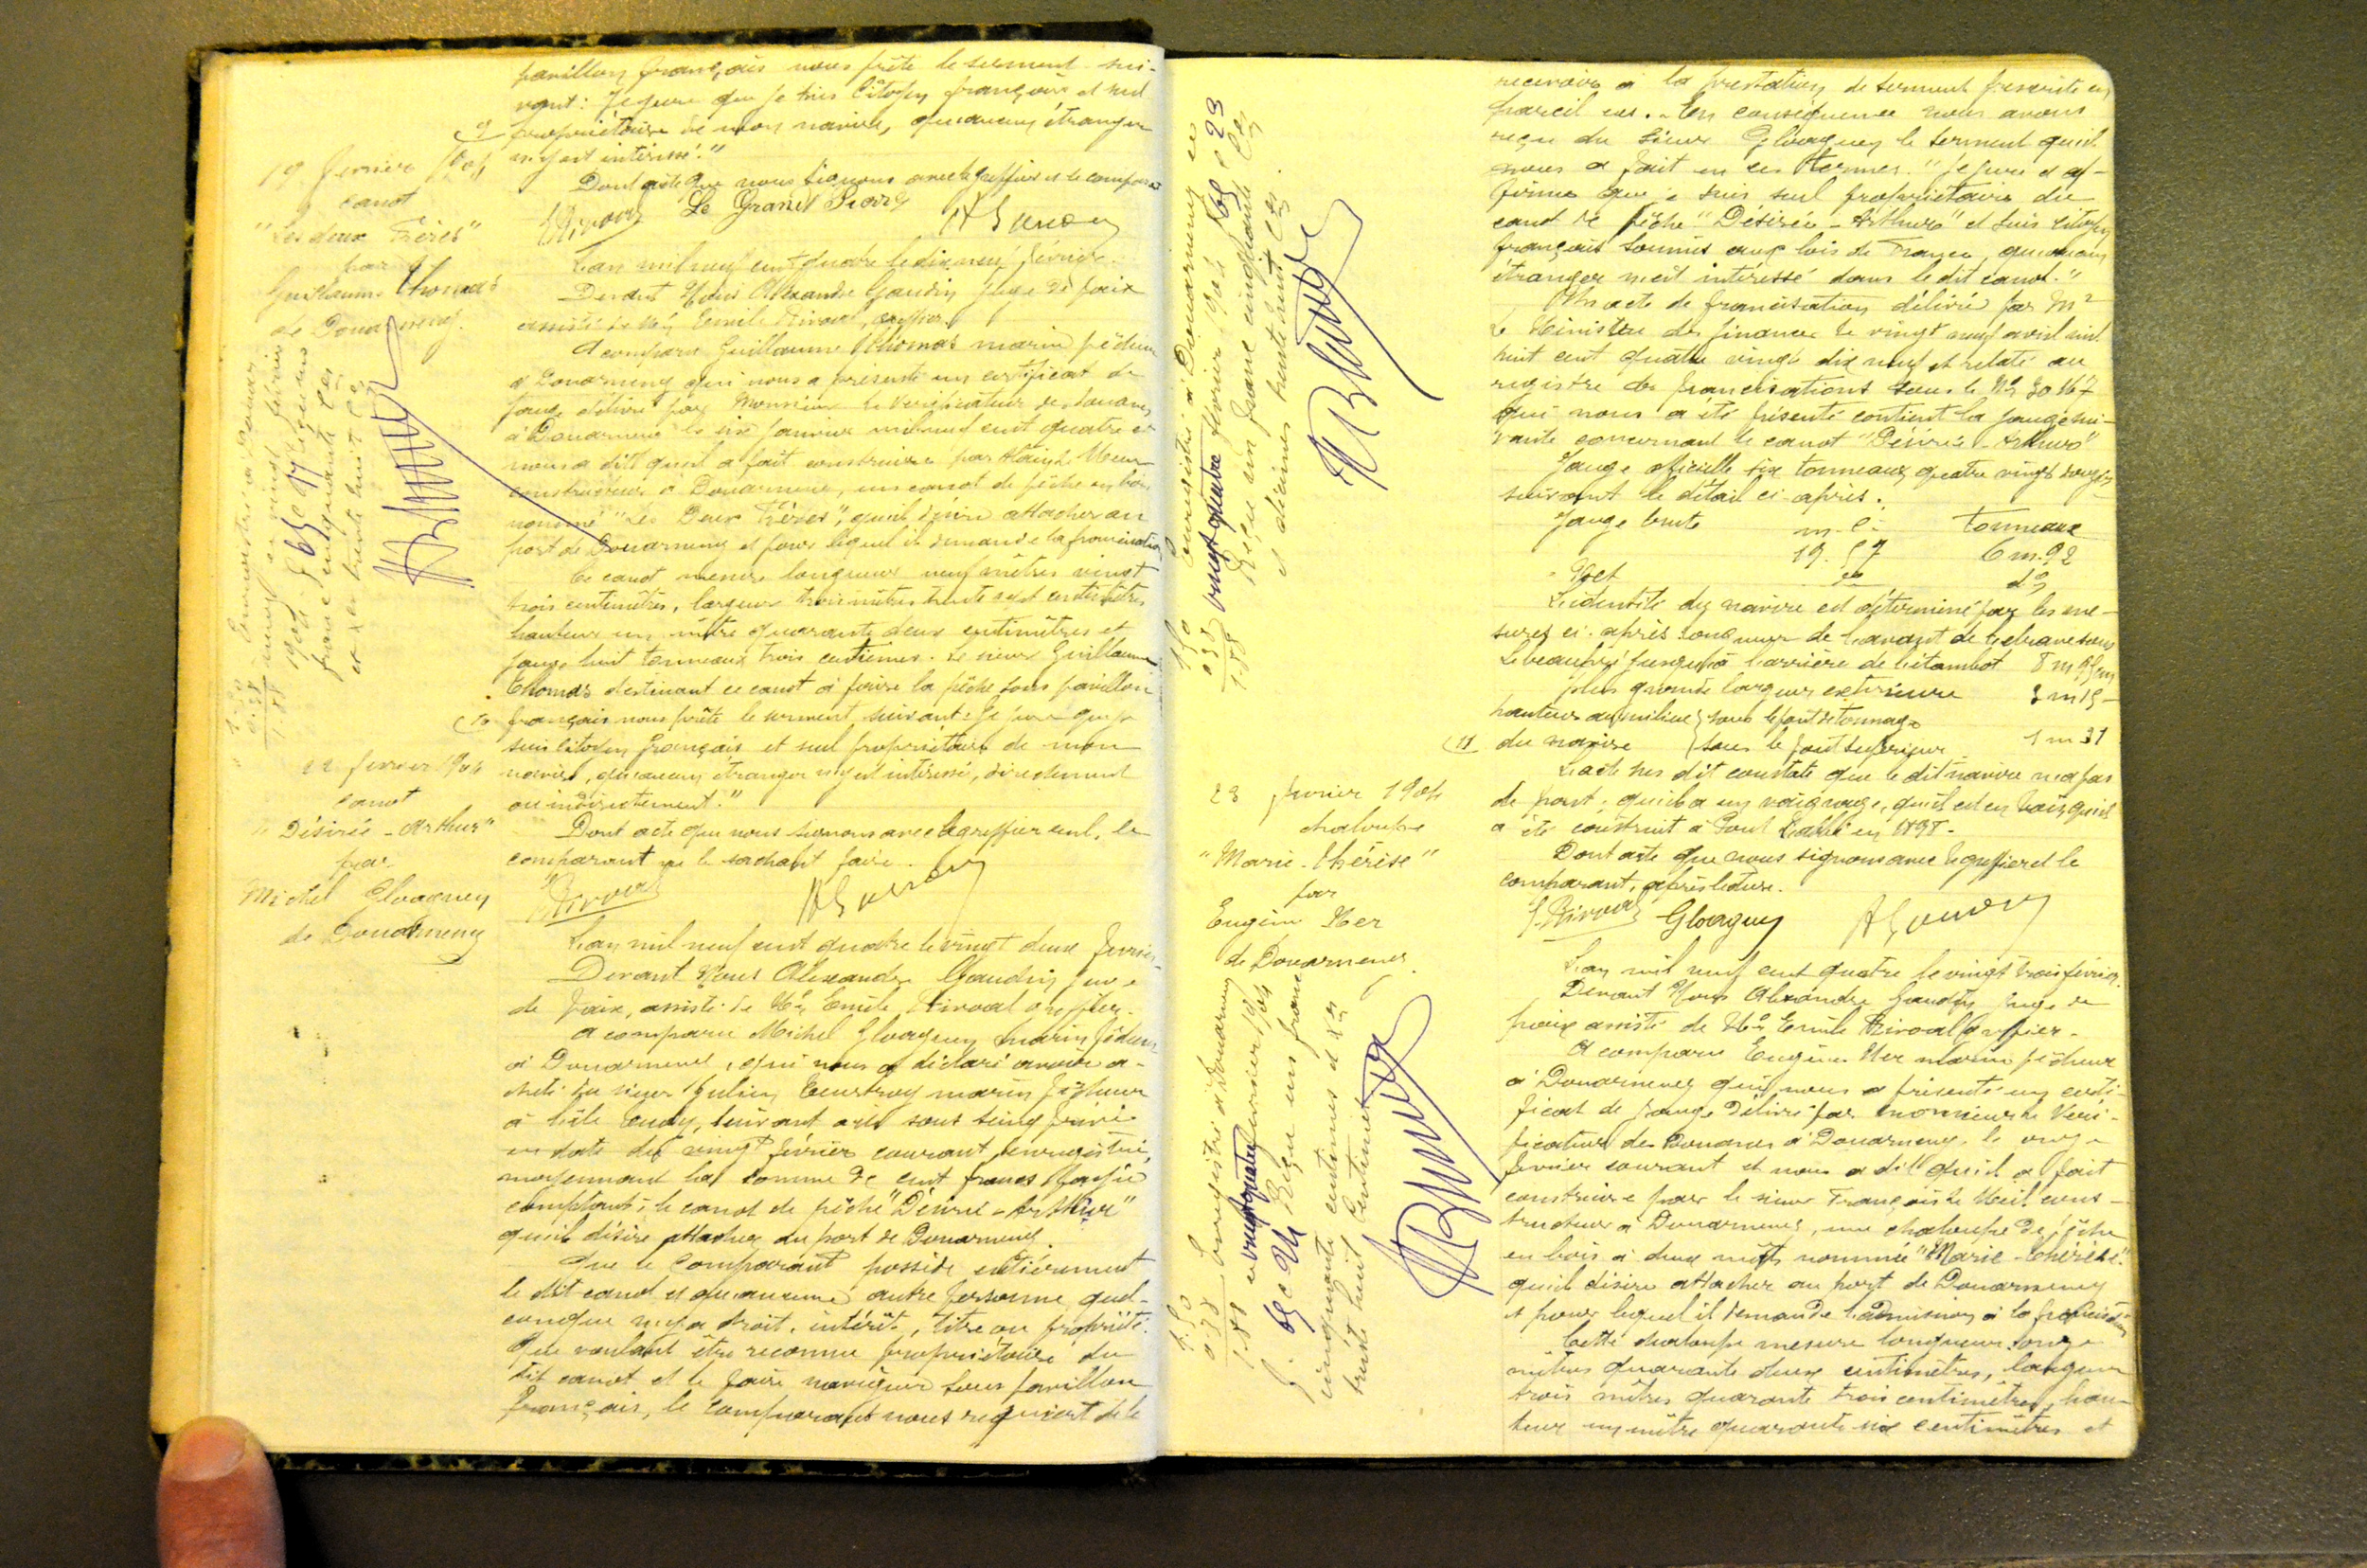 pavillon français nous prête le serment sui-
vant: Je jure que je suis Citoyen français et seul
propriétaire de mon navire, qu'aucun étranger
n'y est intéressé."
Dont acte que nous signons avec le greffier et le comparant
ERivoal Le Grand Pierre AGaudin
9
19 février 1904
canot
"Les deux Frères"
par
Guillaume Thomas
de Douarnenez
L'an mil neuf cent quatre le dix neuf février.
Devant Nous Alexandre Gaudin Juge de paix
assisté de Me Emile Rivoal, greffier.
A comparu Guillaume Thomas marin pêcheur
à Douarnenez qui nous a présenté un certificat de
jauge délivré par Monsieur le Vérificateur des douanes
à Douarnenez le six janvier mil neuf cent quatre et
nous a dit qu'il a fait construire par
constructeur à Douarnenez, un canot de pêche en bois
nommé "Les Deux Frères", qu'il désire attacher au
port de Douarnenez et pour lequel il demande la francisation
Ce canot mesure longueur neuf mètres vingt
trois centimètres, largeur trois mètres trente sept centimètres
hauteur un mètre quarante deux centimètres et
jauge huit tonneaux trois centièmes. Le sieur Guillaume
Thomas destinant ce canot à faire la pêche sous pavillon
français nous prête le serment suivant: Je jure que je
suis citoyen français et seul propriétaire de mon
navire, qu'aucun étranger n'y est intéressé, directement
ou indirectement."
Dont acte que nous signons avec le greffier seul, le
comparant ne le sachant faire.
ERivoal AGaudin
Enregistré à Douar
nenez le vingt février
1904 fo 65 c 97 Reçu un
franc cinquante ces
et Xes trente huit ces
1.50
0.38
1.88
10
22 février 1904
canot
"Désirée-Arthur"
par
Michel Gloaguen
de Douarnenez
L'an mil neuf cent quatre le vingt deux février.
Devant Nous Alexandre Gaudin juge
de Paix, assisté de Me Emile Rivoal greffier.
A comparu Michel Gloaguen marin pêcheur
à Douarnenez, qui nous a déclaré avoir a-
cheté du sieur Julien marin pêcheur
à l'île Tudy, suivant acte sous seing privé
en date du vingt février courant, enregistré,
moyennant la somme de cent francs payée
comptant; le canot de pêche "Désirée-Arthur"
qu'il désire attacher au port de Douarnenez.
Que le Comparant possède entièrement
le dit canot et qu'aucune autre personne quel-
conque n'y a droit, intérêt, titre ou propriété.
Que voulant être reconnu propriétaire du
dit canot et le faire naviguer sous pavillon
français, le comparant nous requiert de le
recevoir à la prestation de serment prescrite en
pareil cas. En conséquence nous avons
reçu du sieur Gloaguen le serment qu'il
nous a fait en ces termes: "Je jure et af-
firme que je suis seul propriétaire du
canot de pêche "Désirée-Arthur" et suis citoyen
français soumis aux lois de France, qu'aucun
étranger n'est intéressé dans le dit canot."
Un acte de francisation délivré par Mr
le Ministre des finances le vingt neuf avril mil
huit cent quatre vingt dix neuf et relaté au
registre des francisations sous le No 30167
qui nous a été présenté contient la jauge sui-
vante concernant le canot "Désirée-Arthur"
Jauge officielle six tonneaux quatre vingt douze
suivant le détail ci-après.
Jauge brute m.c. Tonneaux
19.57 6 m. 92
Net do do
L'identité du navire est déterminé par les me-
sures ci-après longueur de l'avant de l'étrave sous
le beaupré jusqu'à l'arrière de l'étambot 8 m 95
plus grande largeur extérieure 3 m 15
hauteur au milieu sous le pont de tonnage
du navire sous le pont supérieur 1 m 31
L'acte sus dit constate que le dit navire n'a pas
de pont; qu'il a un qu'il est en bois, qu'il
a été construit à Pont l'abbé en 1898.
Dont acte que nous signons avec le greffier et le
comparant, après lecture.
ERivoal Gloaguen AGaudin
Enregistré à Douarnenez le
vingt quatre février 1904 fo 65 c 23
Reçu un franc cinquante Ces
et décimes trente huit Ces.
1.50
0.38
1.88
11
23 février 1904
chaloupe
"Marie-Thérèse"
par
Eugène Her
de Douarnenez
L'an mil neuf cent quatre le vingt trois février.
Devant Nous Alexandre Gaudin Juge de
paix assisté de Me Emile Rivoal greffier.
A comparu Eugène Her marin pêcheur
à Douarnenez qui nous a présenté un certi-
ficat de jauge délivré par monsieur le Véri-
ficateur des Douanes à Douarnenez, le onze
février courant et nous a dit qu'il a fait
construire par le sieur François cons-
tructeur à Douarnenez, une chaloupe de pêche
en bois à deux mâts nommée "Marie-Thérèse"
qu'il désire attacher au port de Douarnenez
et pour lequel il demande l'admission à la francisation
Cette chaloupe mesure longueur onze
mètres quarante deux centimètres, largeur
trois mètres quarante trois centimètres, hau-
teur un mètre quarante six centimètres et
Enregistré à Douarnenez
le vingt quatre février 1904
fo 65 c 24 Reçu un franc
cinquante centimes et Xes
trente huit Centimes
1.50
0.38
1.88